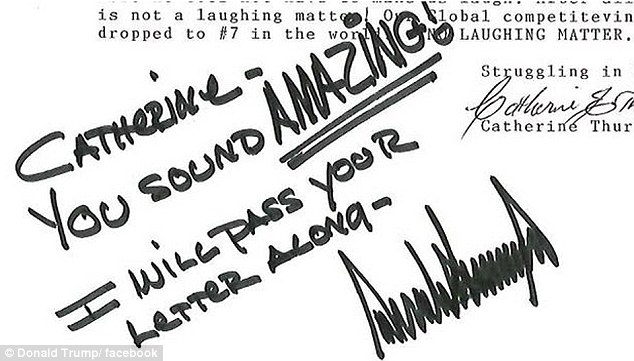 is not a laughing matter! Our Global competetivin
dropped to #7 in the world. NO LAUGHING MATTER.
Struggling in
Catherine
Catherine Thur
CATHERINE -
YOU SOUND AMAZING!
I WILL PASS YOUR
LETTER ALONG -
© Donald Trump/ facebook